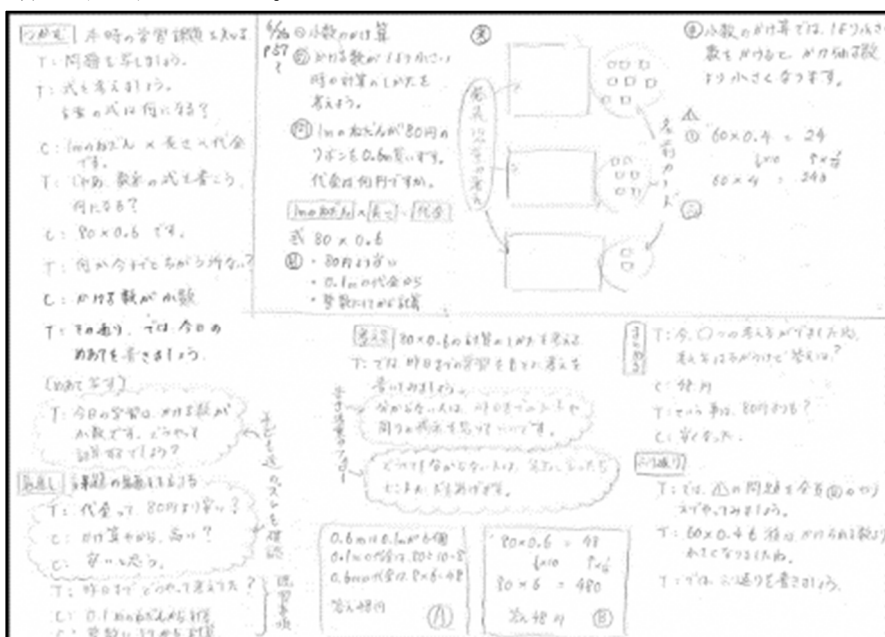 つかむ 本時の学習課題を知る
T: 問題を写しましょう。
T: 式を考えましょう。
言葉の式は何になる?
C: 1mのねだん × 長さ = 代金
です。
T: じゃあ、数字の式を書こう。
何になる?
C: 80×0.6 です。
T: 何か今までとちがう所ない?
C: かける数が小数
T: その通り。では今日の
めあてを書きましょう。
(めあて写す)
T: 今日の学習は、かける数が
小数です。どうやって
計算するでしょう?
見通し 課題の見通しをもつ
T: 代金って、80円より安い?
C: 安いと思う。
T: 昨日までどうやって考えてた?
C: 0.1mのねだんから計算
6/20 小数のかけ算
P57
かける数が1より小さい
時の計算のしかたを
考えよう。
問 1mのねだんが80円の
リボンを0.6m買います。
代金は何円ですか。
1mのねだん × 長さ = 代金
式 80×0.6
・80円より安い
・0.1mの代金から
・整数にしてから計算
名前カード
小数のかけ算では、1より小さい
数をかけると、かけられる数
より小さくなります。
60×0.4 = 24
60×4 = 240
考える 80×0.6の計算のしかたを考える
T: では昨日までの学習をもとに考えを
書いてみましょう。
分からない人は、昨日までのノートや
0.6mは0.1mが6個
0.1mの代金は、80÷10=8
0.6mの代金は、8×6=48
答え48円
A
80×0.6 = 48
80×6 = 480
答え48円
B
まとめる
T: 今、○つの考えがでましたね。
C: 48円
T: という事は、80円よりも?
C: 安くなった。
ふり返り
T: では、の問題を全員のやり
方でやってみましょう。
T: 60×0.4も答えはかけられる数より
小さくなりましたね。
T: では、ふり返りを書きましょう。